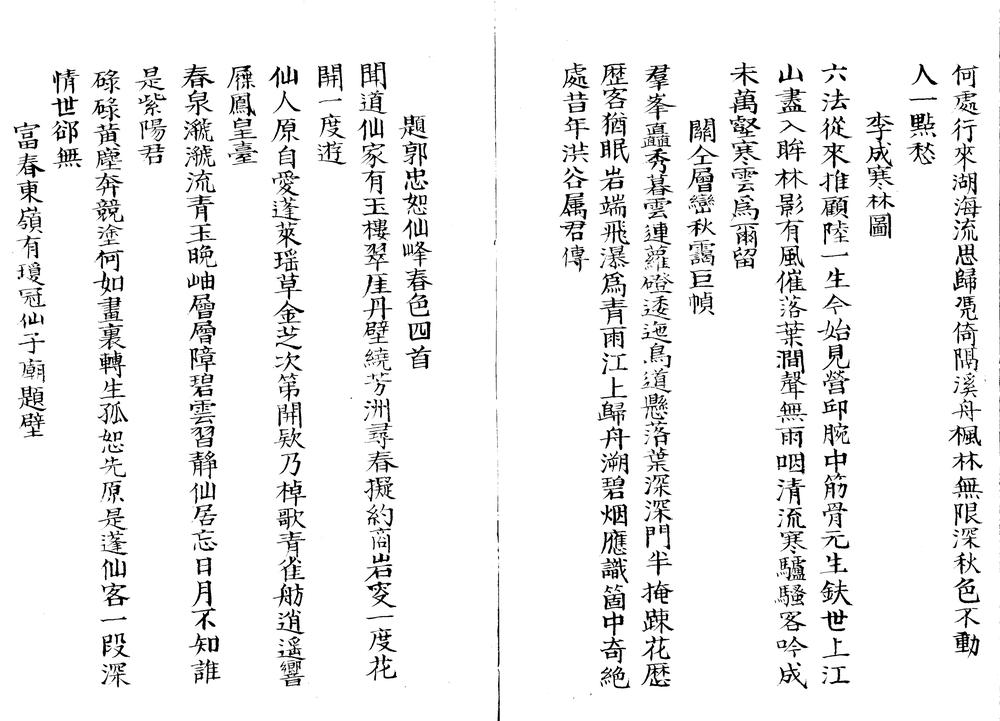 何處行來湖海流思歸凴倚隔溪舟楓林無限深秋色不動
人一點愁
李成寒林圖
六法從來推顧陸一生今始見營邱腕中筋骨元生鉄世上江
山盡入眸林影有風催落葉澗聲無雨咽清流寒驢騷客吟成
未萬壑寒雲爲爾留
關仝層巒秋靄巨幀
羣峯矗秀暮雲連蘿磴逶迤鳥道懸落葉深深門半掩踈花歴
歴客猶眠岩端飛瀑爲青雨江上歸舟溯碧烟應識箇中奇絕
處昔年洪谷属君傳
題郭忠恕仙峰春色四首
聞道仙家有玉樓翠厓丹壁繞芳洲尋春擬約商岩叟一度花
開一度遊
仙人原自愛蓬萊瑶草金芝次第開欵乃棹歌青雀舫逍遥響
屧鳳皇臺
春泉㶁㶁流青玉晚岫層層障碧雲習靜仙居忘日月不知誰
是紫陽君
碌碌黃塵奔競塗何如畫裏轉生孤恕先原是蓬仙客一段深
情世郤無
富春東嶺有瓊冠仙子廟題壁